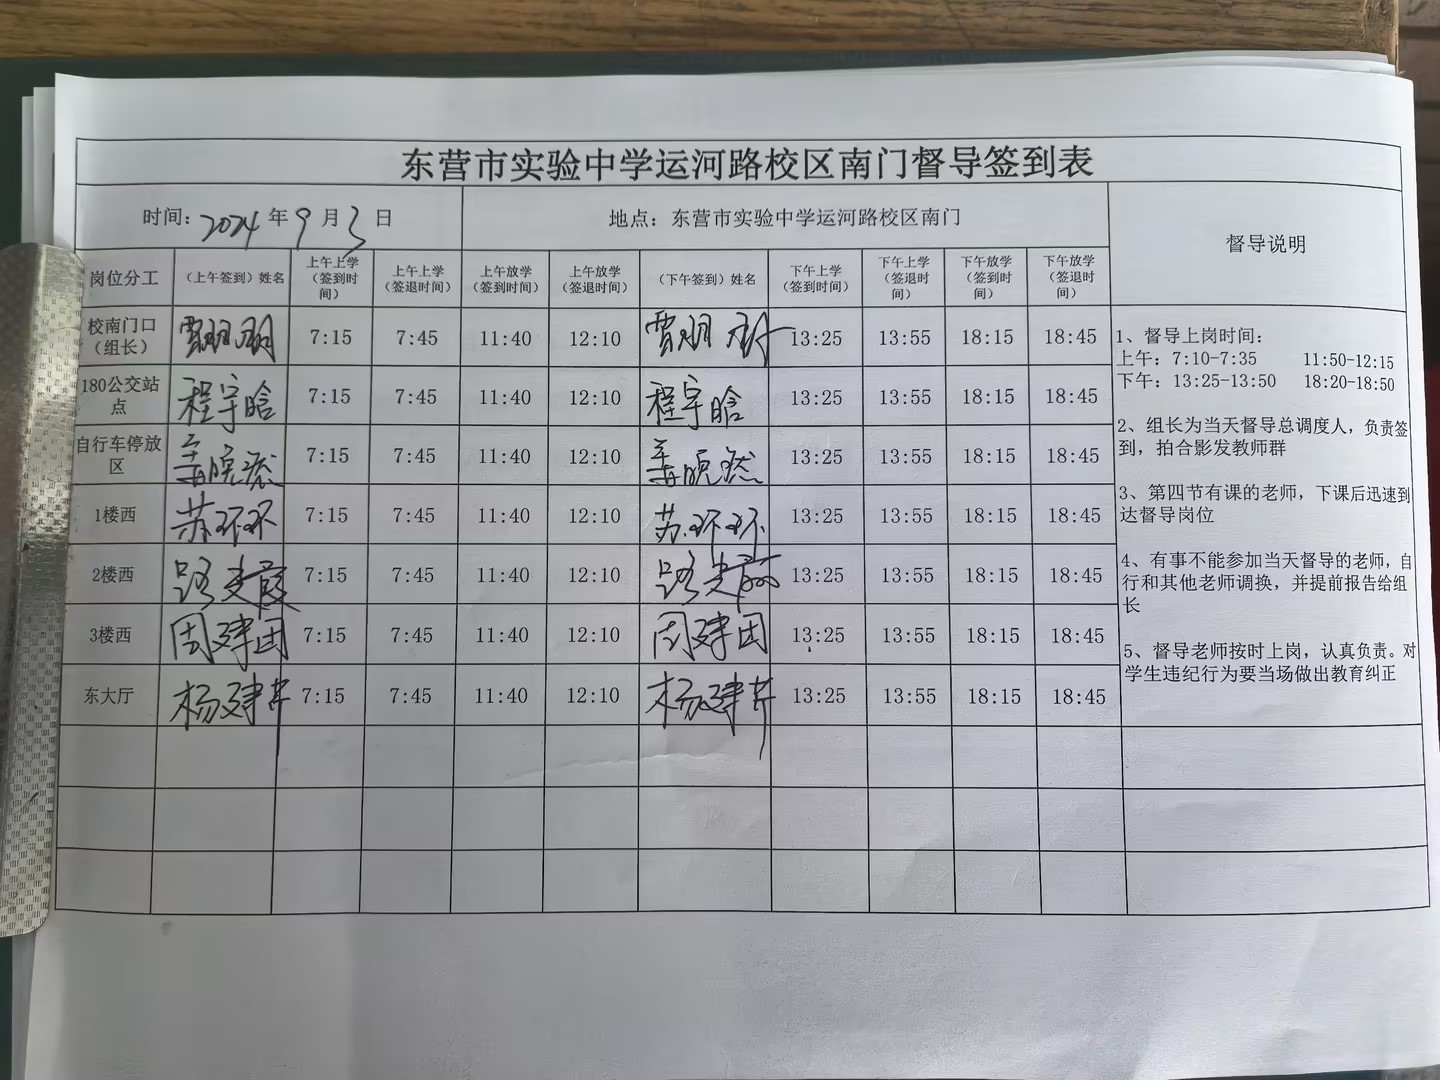 东营市实验中学运河路校区南门督导签到表
时间：2024年9月3日 地点：东营市实验中学运河路校区南门 督导说明
岗位分工 （上午签到）姓名 上午上学（签到时间） 上午上学（签退时间） 上午放学（签到时间） 上午放学（签退时间） （下午签到）姓名 下午上学（签到时间） 下午上学（签退时间） 下午放学（签到时间） 下午放学（签退时间）
校南门口（组长） 7:15 7:45 11:40 12:10 13:25 13:55 18:15 18:45
180公交站点 程宇晗 7:15 7:45 11:40 12:10 程宇晗 13:25 13:55 18:15 18:45
自行车停放区 姜晓 7:15 7:45 11:40 12:10 姜晓 13:25 13:55 18:15 18:45
1楼西 苏环环 7:15 7:45 11:40 12:10 苏环环 13:25 13:55 18:15 18:45
2楼西 路 霞 7:15 7:45 11:40 12:10 路 霞 13:25 13:55 18:15 18:45
3楼西 周建国 7:15 7:45 11:40 12:10 周建国 13:25 13:55 18:15 18:45
东大厅 杨建 7:15 7:45 11:40 12:10 杨建 13:25 13:55 18:15 18:45
1、督导上岗时间：
上午：7:10-7:35 11:50-12:15
下午：13:25-13:50 18:20-18:50
2、组长为当天督导总调度人，负责签
到，拍合影发教师群
3、第四节有课的老师，下课后迅速到
达督导岗位
4、有事不能参加当天督导的老师，自
行和其他老师调换，并提前报告给组
长
5、督导老师按时上岗，认真负责。对
学生违纪行为要当场做出教育纠正